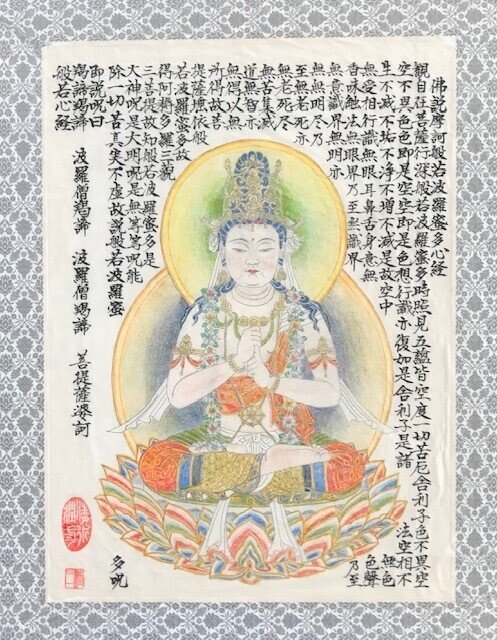 佛説摩訶般若波羅蜜多心経
觀自在菩薩行深般若波羅蜜多時照見五蘊皆空度一切苦厄舍利子色不異空
空不異色色即是空空即是色想行識亦復如是舍利子是諸法空相不
生不滅不垢不浄不増不減是故空中無色
無受相行識無眼耳鼻舌身意無色聲
香味触法無眼界乃至無識界乃至
無意識界無無明亦
無無明尽乃
至無老死亦
無老死尽
無苦集滅
道無智亦
無得以無
所得故菩
提薩埵依般
若波羅蜜多故
得阿耨多羅三藐
三菩提故知般若波羅蜜多是
大神呪是大明呪是無等等呪能
除一切苦真実不虚故説般若波羅蜜多呪
即説呪曰
羯諦羯諦 波羅僧羯諦 波羅僧羯諦 菩提薩婆訶
般若心経